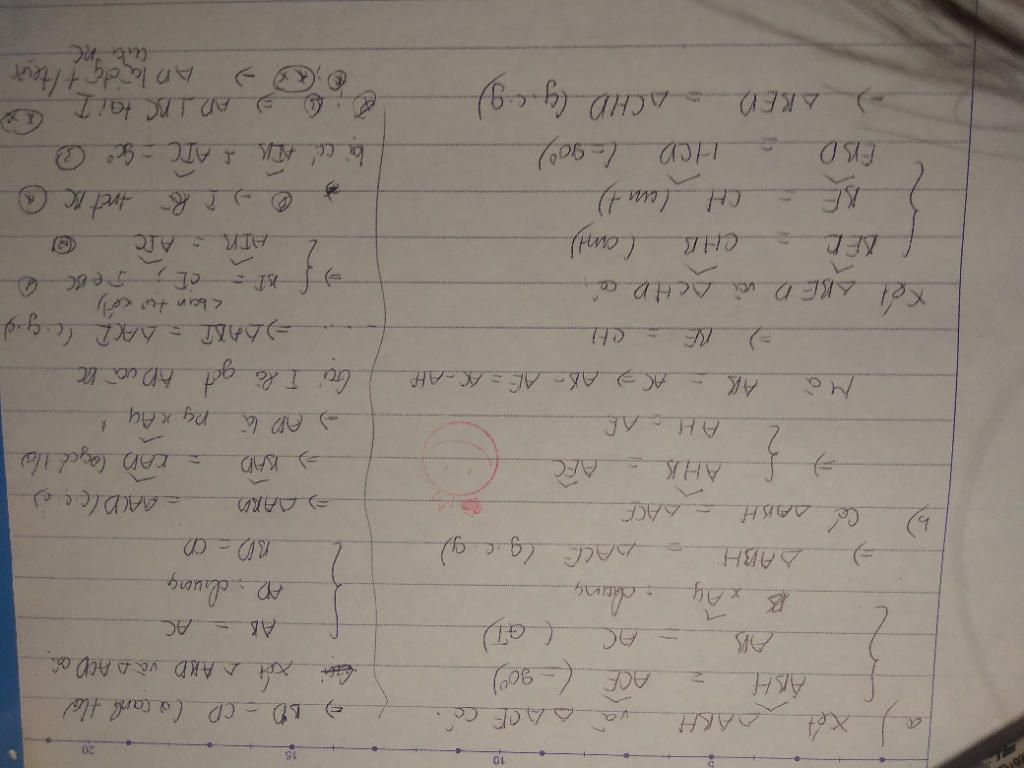 a) Xét △ABH và △ACE có:
ABH = ACE (=90°)
AB = AC (GT)
xAy : chung
=> △ABH = △ACE (g.c.g)
b) Có △ABH = △ACE
=> AHB = AEC
AH = AE
Mà AB = AC => AB - AE = AC - AH
=> BE = CH
Xét △BED và △CHD có:
BED = CHB (cmt)
BE = CH (cmt)
EBD = HCD (=90°)
=> △BED = △CHD (g.c.g)
=> BD = CD (2 cạnh t/ư)
Xét △ABD và △ACD có:
AB = AC
AD : chung
BD = CD
=> △ABD = △ACD (c.c.c)
=> BAD = CAD (2 góc t/ư)
=> AD là pg xAy
Gọi I là gđ AD và BC
..... => △ABI = △ACI (c.g.c)
=> BI = CI ; I ∈ BC
AIB = AIC
=> I là trđ BC
có AIB + AIC = 90°
=> AD ⊥ BC tại I
=> AD là đg t/trực
của BC
5
10
15
20